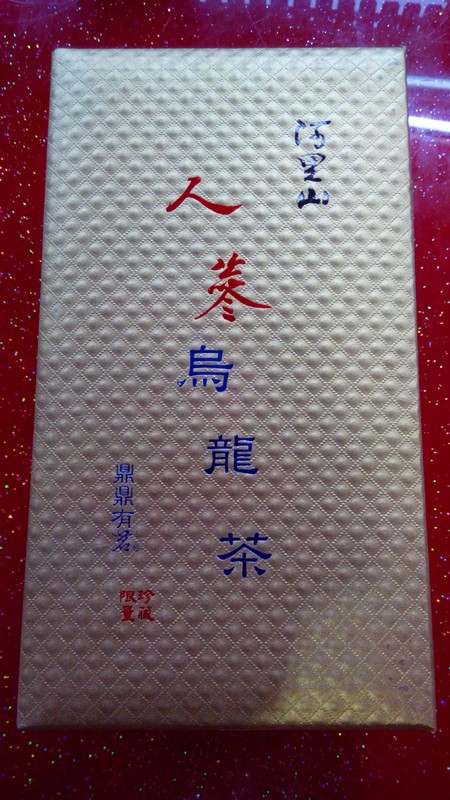 阿里山
人蔘烏龍茶
鼎鼎有茗®
珍藏
限量